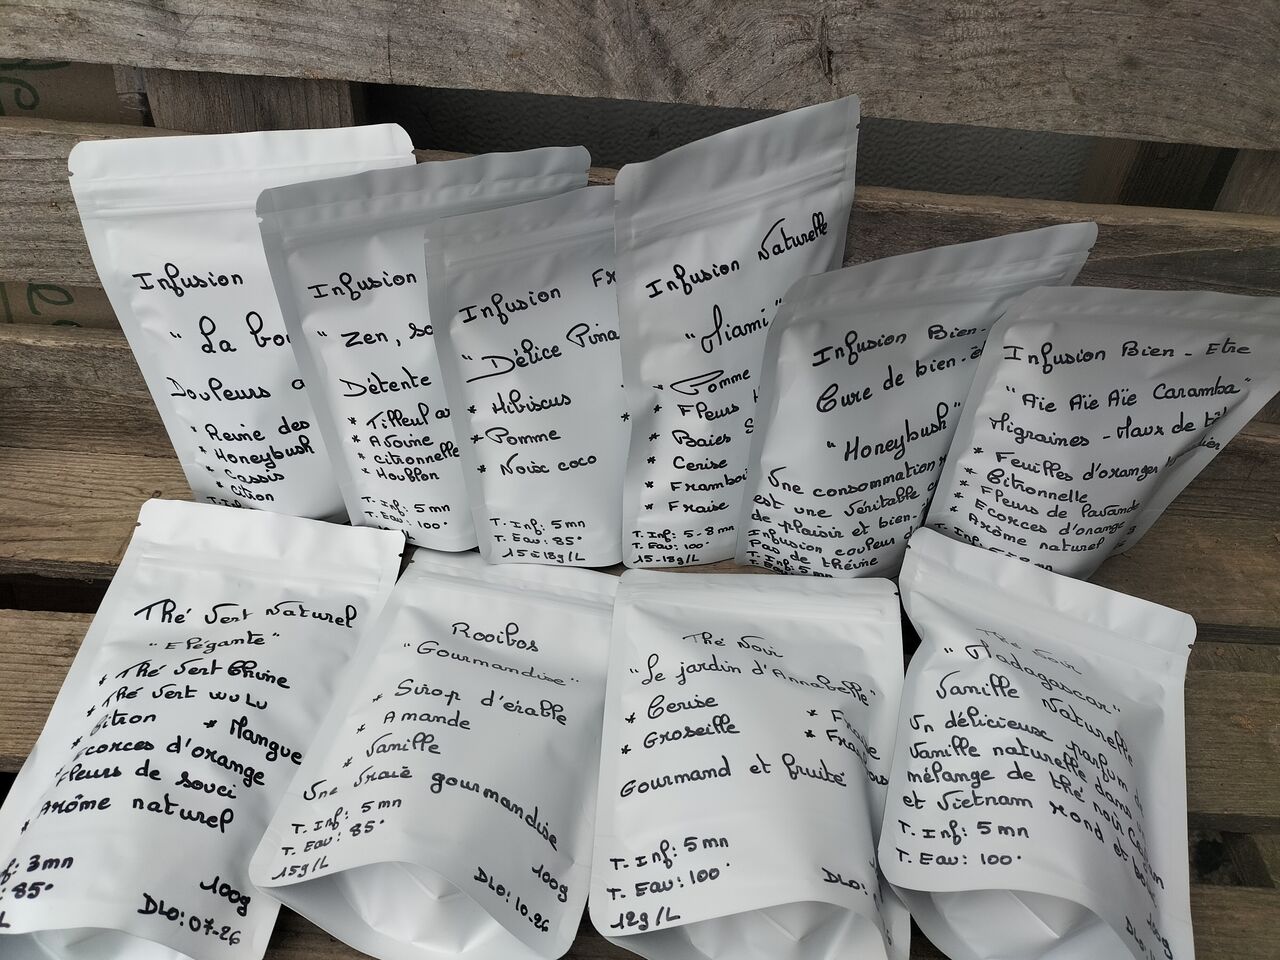 Infusion
"La
Douleurs
* Reine des
* Honeybush
* Cassis
* Citron
Infusion
"Zen,
Détente
* Tilleul
* Avoine
* Citronnelle
* Houblon
T. Inf: 5 mn
T. Eau: 100°
Infusion
"Délice
* Hibiscus
* Pomme
* Noix coco
T. Inf: 5mn
T. Eau: 85°
15 à 18g/L
Infusion Naturelle
"Miami"
* Pomme
* Fleurs
* Baies
* Cerise
*
* Fraise
T. Inf: 5-8 mn
T. Eau: 100°
15-18g/L
Infusion Bien-
Cure de bien-
"Honeybush"
Une consommation
est une véritable
de plaisir et bien-
Infusion couleur
Pas de théine
T. Inf: 5 mn
Infusion Bien-Etre
"Aïe Aïe Aïe Caramba"
Migraines - Maux de
* Feuilles d'oranger
* Citronnelle
* Fleurs de lavande
* Ecorces d'orange
* Arôme naturel
Thé Vert Naturel
"Elégante"
* Thé Vert Chine
* Thé Vert wu Lu
* Citron * Mangue
Ecorces d'orange
Fleurs de souci
* Arôme naturel
3mn
85°
100g
DLO: 07-26
Rooibos
"Gourmandise"
* Sirop d'érable
* Amande
* Vanille
Une vraie gourmandise
T. Inf: 5mn
T. Eau: 85°
15g/L
100g
DLO: 10-26
Thé Noir
"Le jardin d'Annabelle"
* Cerise
* Groseille
Gourmand et fruité
T. Inf: 5mn
T. Eau: 100°
12g/L
100g
DLO:
Thé Noir
"Madagascar"
Vanille Naturelle
Un délicieux parfum de
Vanille naturelle dans
mélange de thé noir
et Vietnam rond et
T. Inf: 5 mn
T. Eau: 100°
100g
DLO: